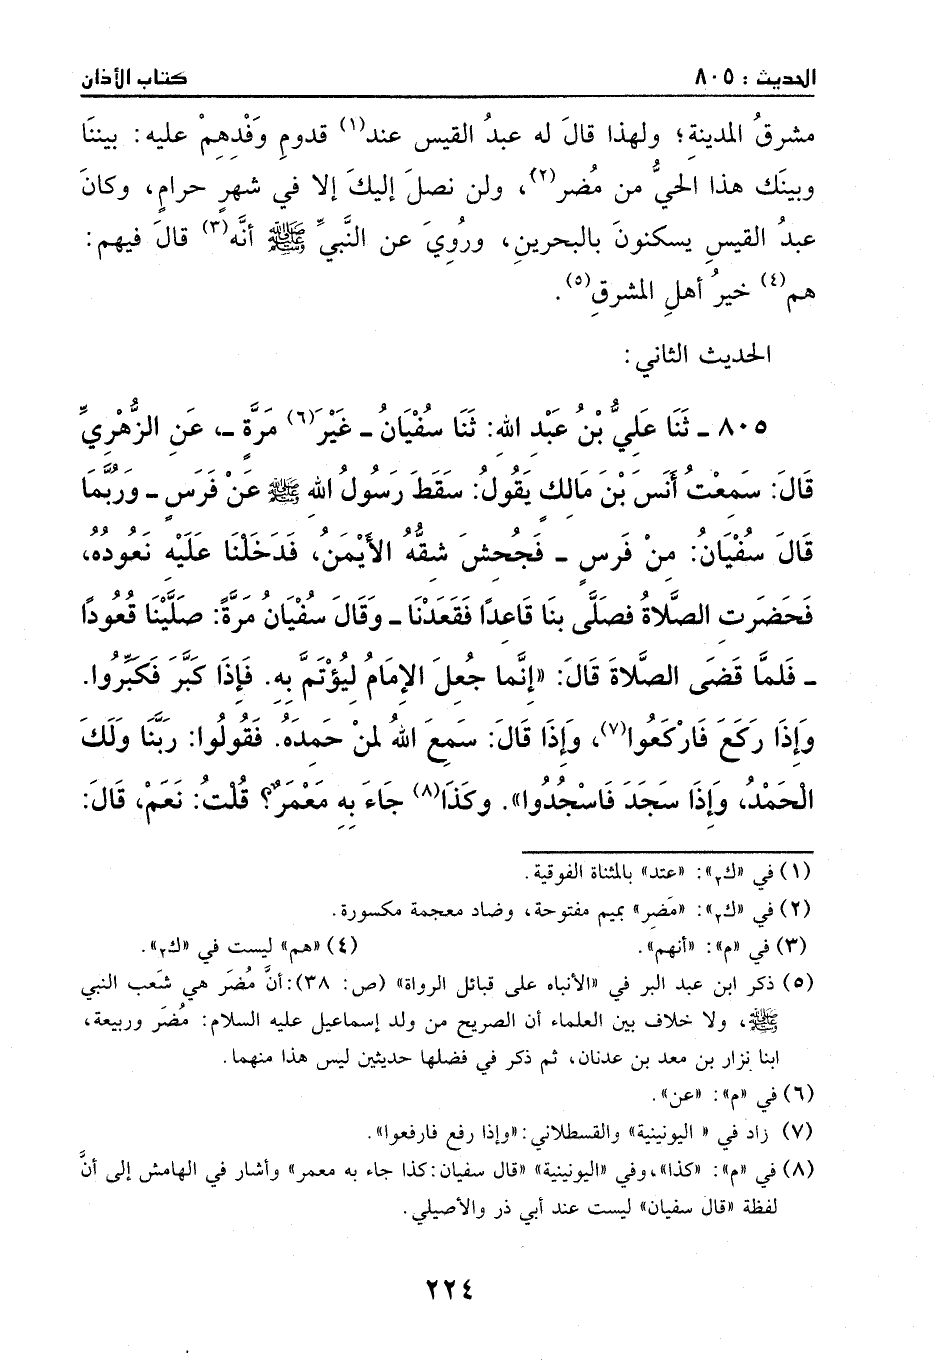 الحديث : ٨٠٥ كتاب الأذان
مشرقُ المدينةِ؛ ولهذا قالَ له عبدُ القيس عند(١) قدومِ وَفْدِهِمْ عليه: بيننَا
وبينَك هذا الحيُّ من مُضر(٢)، ولن نصلَ إليكَ إلا في شهرٍ حرامٍ، وكانَ
عبدُ القيسِ يسكنونَ بالبحرينِ، ورُويَ عن النَّبيِّ ﷺ أنَّه(٣) قالَ فيهم:
هم(٤) خيرُ أهلِ المشرقِ(٥).
الحديث الثاني:
٨٠٥ ـ ثَنَا عَلِيُّ بْنُ عَبْدِ اللهِ: ثَنَا سُفْيَانُ ـ غَيْرَ(٦) مَرَّةٍ ـ، عَنِ الزُّهْرِيِّ
قَالَ: سَمِعْتُ أَنَسَ بْنَ مَالِكٍ يَقُولُ: سَقَطَ رَسُولُ اللهِ ﷺ عَنْ فَرَسٍ ـ وَرُبَّمَا
قَالَ سُفْيَانُ: مِنْ فَرَسٍ ـ فَجُحِشَ شِقُّهُ الأَيْمَنُ، فَدَخَلْنَا عَلَيْهِ نَعُودُهُ،
فَحَضَرَتِ الصَّلاةُ فَصَلَّى بِنَا قَاعِدًا فَقَعَدْنَا ـ وَقَالَ سُفْيَانُ مَرَّةً: صَلَّيْنَا قُعُودًا
ـ فَلَمَّا قَضَى الصَّلاةَ قَالَ: «إِنَّمَا جُعِلَ الإِمَامُ لِيُؤْتَمَّ بِهِ. فَإِذَا كَبَّرَ فَكَبِّرُوا.
وَإِذَا رَكَعَ فَارْكَعُوا(٧)، وَإِذَا قَالَ: سَمِعَ اللهُ لِمَنْ حَمِدَهُ. فَقُولُوا: رَبَّنَا وَلَكَ
الْحَمْدُ، وَإِذَا سَجَدَ فَاسْجُدُوا». وكَذَا(٨) جَاءَ بِهِ مَعْمَرٌ؟ قُلْتُ: نَعَمْ، قَالَ:
(١) في «ك٢»: «عتد» بالمثناة الفوقية.
(٢) في «ك٢»: «مَضِر» بميم مفتوحة، وضاد معجمة مكسورة.
(٣) في «م»: «أنهم». (٤) «هم» ليست في «ك٢».
(٥) ذكر ابن عبد البر في «الأنباه على قبائل الرواة» (ص: ٣٨): أنَّ مُضَر هي شَعب النبي
ﷺ، ولا خلاف بين العلماء أن الصريح من ولد إسماعيل عليه السلام: مُضَر وربيعة،
ابنا نِزار بن معد بن عدنان، ثم ذكر في فضلها حديثين ليس هذا منهما.
(٦) في «م»: «عن».
(٧) زاد في « اليونينية» والقسطلاني: «وإذا رفع فارفعوا».
(٨) في «م»: «كذا»، وفي «اليونينية» «قال سفيان: كذا جاء به معمر» وأشار في الهامش إلى أنَّ
لفظة «قال سفيان» ليست عند أبي ذر والأصيلي.
٢٢٤